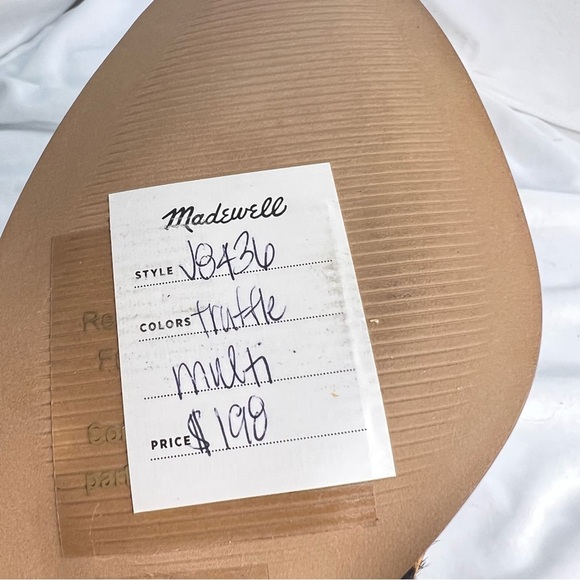 Madewell
STYLE J8436
COLORS truffle
multi
PRICE $198